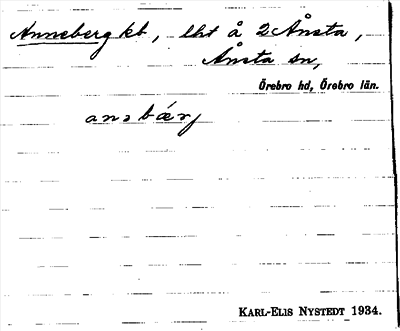 Anneberg kb, lht å 2 Ånsta,
Ånsta sn,
Örebro hd, Örebro län.
KARL-ELIS NYSTEDT 1934.